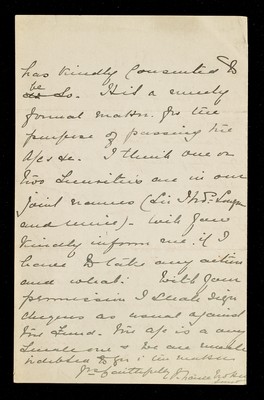 has kindly consented to
be so. It is a merely
formal matter for the
purpose of passing the
A/cs &c. I think one or
two Securities are in our
joint names (Sir Thos.
and mine). Will you
kindly inform me if I
have to take any action
and what. With your
permission I shall sign
cheques as usual against
the Fund. The A/c is a
one & we are much
indebted to you in the matter
Yrs faithfully